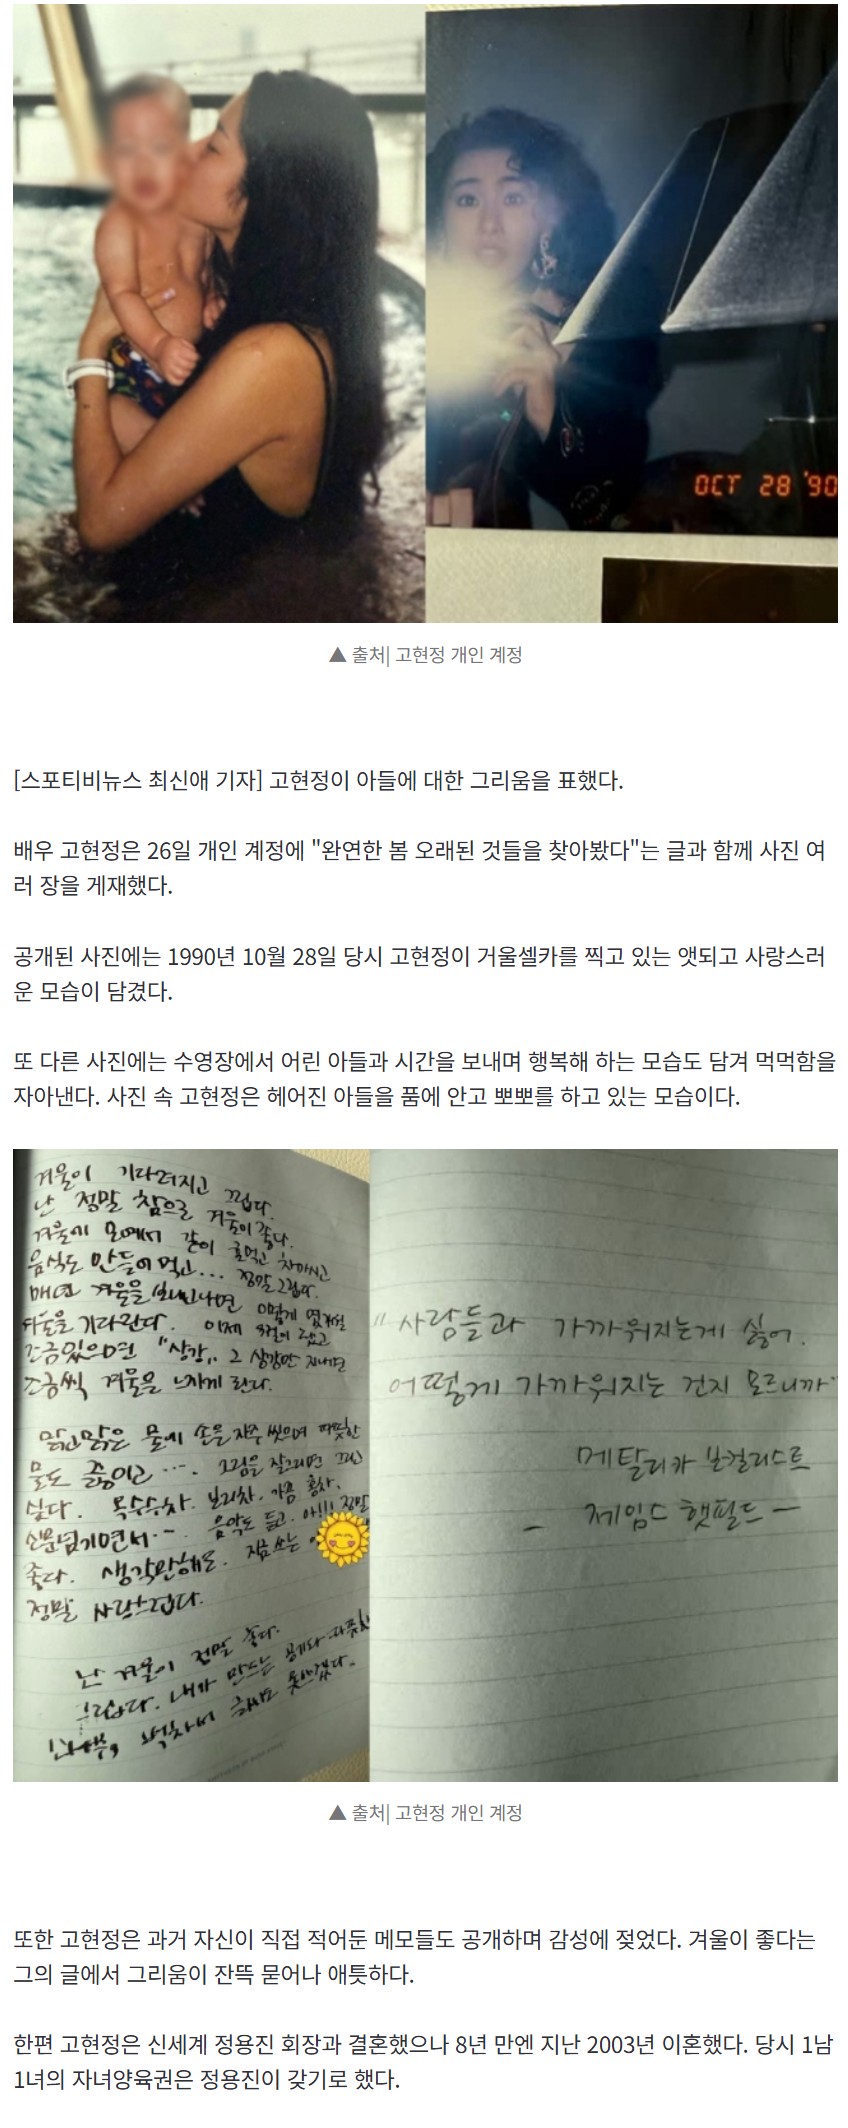 OCT 28 '90
▲ 출처| 고현정 개인 계정
[스포티비뉴스 최신애 기자] 고현정이 아들에 대한 그리움을 표했다.
배우 고현정은 26일 개인 계정에 "완연한 봄 오래된 것들을 찾아봤다"는 글과 함께 사진 여
러 장을 게재했다.
공개된 사진에는 1990년 10월 28일 당시 고현정이 거울셀카를 찍고 있는 앳되고 사랑스러
운 모습이 담겼다.
또 다른 사진에는 수영장에서 어린 아들과 시간을 보내며 행복해 하는 모습도 담겨 먹먹함을
자아낸다. 사진 속 고현정은 헤어진 아들을 품에 안고 뽀뽀를 하고 있는 모습이다.
겨울이 기다려지고 그립다.
난 정말 참으로 겨울이 좋다.
겨울에 모여서 같이
음식도 만들어 먹고... 정말 그립다.
매년 겨울을 보내면 이렇게
겨울을 기다린다. 이제
조금있으면 "상강" 그 상강만 지나면
조금씩 겨울을 느끼게 된다.
맑고맑은 물에 손을 자주 씻으며 따뜻한
물도 끓이고 .... 그림을 잘그리면 그리고
싶다. 옥수수차. 보리차. 가끔 홍차.
음악도 듣고. 아!!! 정말
좋다. 생각만해도. 지금 쓰는
정말 사랑스럽다.
난 겨울이 정말 좋다.
그립다. 내가 만드는
"사람들과 가까워지는게 싫어.
어떻게 가까워지는 건지 모르니까"
메탈리카 보컬리스트
- 제임스 햇필드 -
▲ 출처| 고현정 개인 계정
또한 고현정은 과거 자신이 직접 적어둔 메모들도 공개하며 감성에 젖었다. 겨울이 좋다는
그의 글에서 그리움이 잔뜩 묻어나 애틋하다.
한편 고현정은 신세계 정용진 회장과 결혼했으나 8년 만엔 지난 2003년 이혼했다. 당시 1남
1녀의 자녀양육권은 정용진이 갖기로 했다.